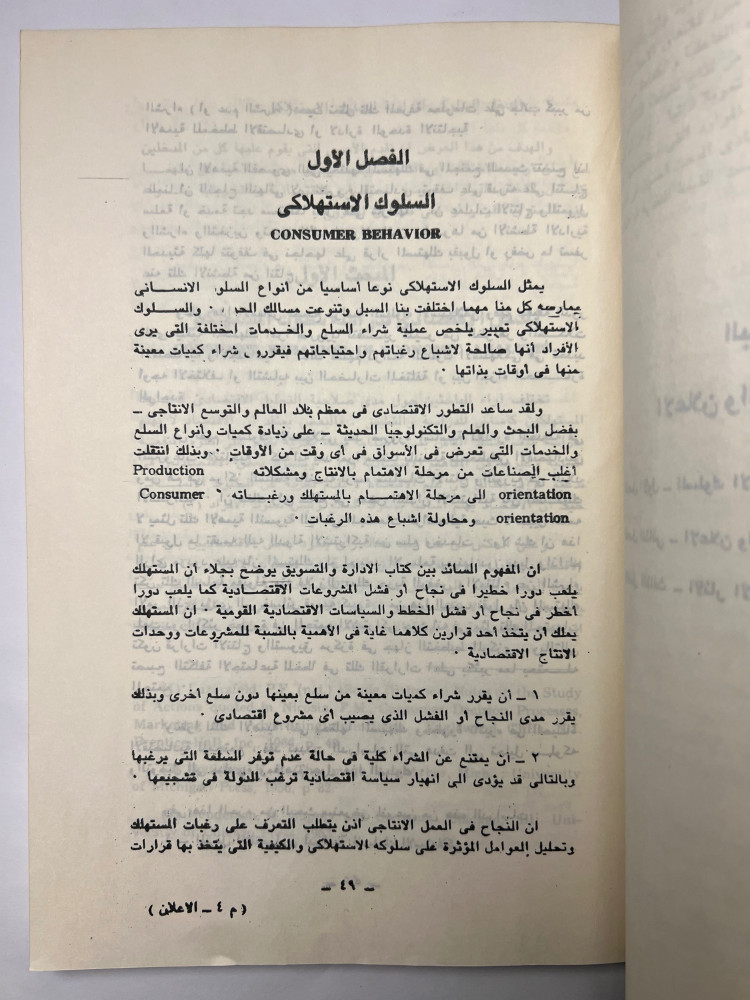 الفصل الأول
السلوك الاستهلاكى
CONSUMER BEHAVIOR
يمثل السلوك الاستهلاكى نوعا أساسيا من أنواع السلو. الانسانى
يمارسه كل منا مهما اختلفت بنا السبل وتنوعت مسالك الحي . والسلوك
الاستهلاكى تعبير يلخص عملية شراء السلع والخدمات المختلفة التى يرى
الأفراد أنها صالحة لاشباع رغباتهم واحتياجاتهم فيقررو, شراء كميات معينة
منها فى أوقات بذاتها .
ولقد ساعد التطور الاقتصادى فى معظم بلاد العالم والتوسع الانتاجى ــ
بفضل البحث والعلم والتكنولوجيا الحديثة ــ على زيادة كميات وأنواع السلع
والخدمات التى تعرض فى الأسواق فى أى وقت من الأوقات . وبذلك انتقلت
أغلب الصناعات من مرحلة الاهتمام بالانتاج ومشكلاته Production
orientation الى مرحلة الاهتمام بالمستهلك ورغباته Consumer
orientation ومحاولة اشباع هذه الرغبات .
ان المفهوم السائد بين كتاب الادارة والتسويق يوضح بجلاء أن المستهلك
يلعب دورا خطيرا فى نجاح أو فشل المشروعات الاقتصادية كما يلعب دورا
أخطر فى نجاح أو فشل الخطط والسياسات الاقتصادية القومية . ان المستهلك
يملك أن يتخذ أحد قرارين كلاهما غاية فى الأهمية بالنسبة للمشروعات ووحدات
الانتاج الاقتصادية .
١ ــ أن يقرر شراء كميات معينة من سلع بعينها دون سلع أخرى وبذلك
يقرر مدى النجاح أو الفشل الذى يصيب أى مشروع اقتصادى .
٢ ــ أن يمتنع عن الشراء كلية فى حالة عدم توفر السلعة التى يرغبها
وبالتالى قد يؤدى الى انهيار سياسة اقتصادية ترغب الدولة فى تشجيعها .
ان النجاح فى العمل الانتاجى اذن يتطلب التعرف على رغبات المستهلك
وتحليل العوامل المؤثرة على سلوكه الاستهلاكى والكيفية التى يتخذ بها قرارات
ــ ٤٩ ــ
( م ٤ ــ الاعلان )